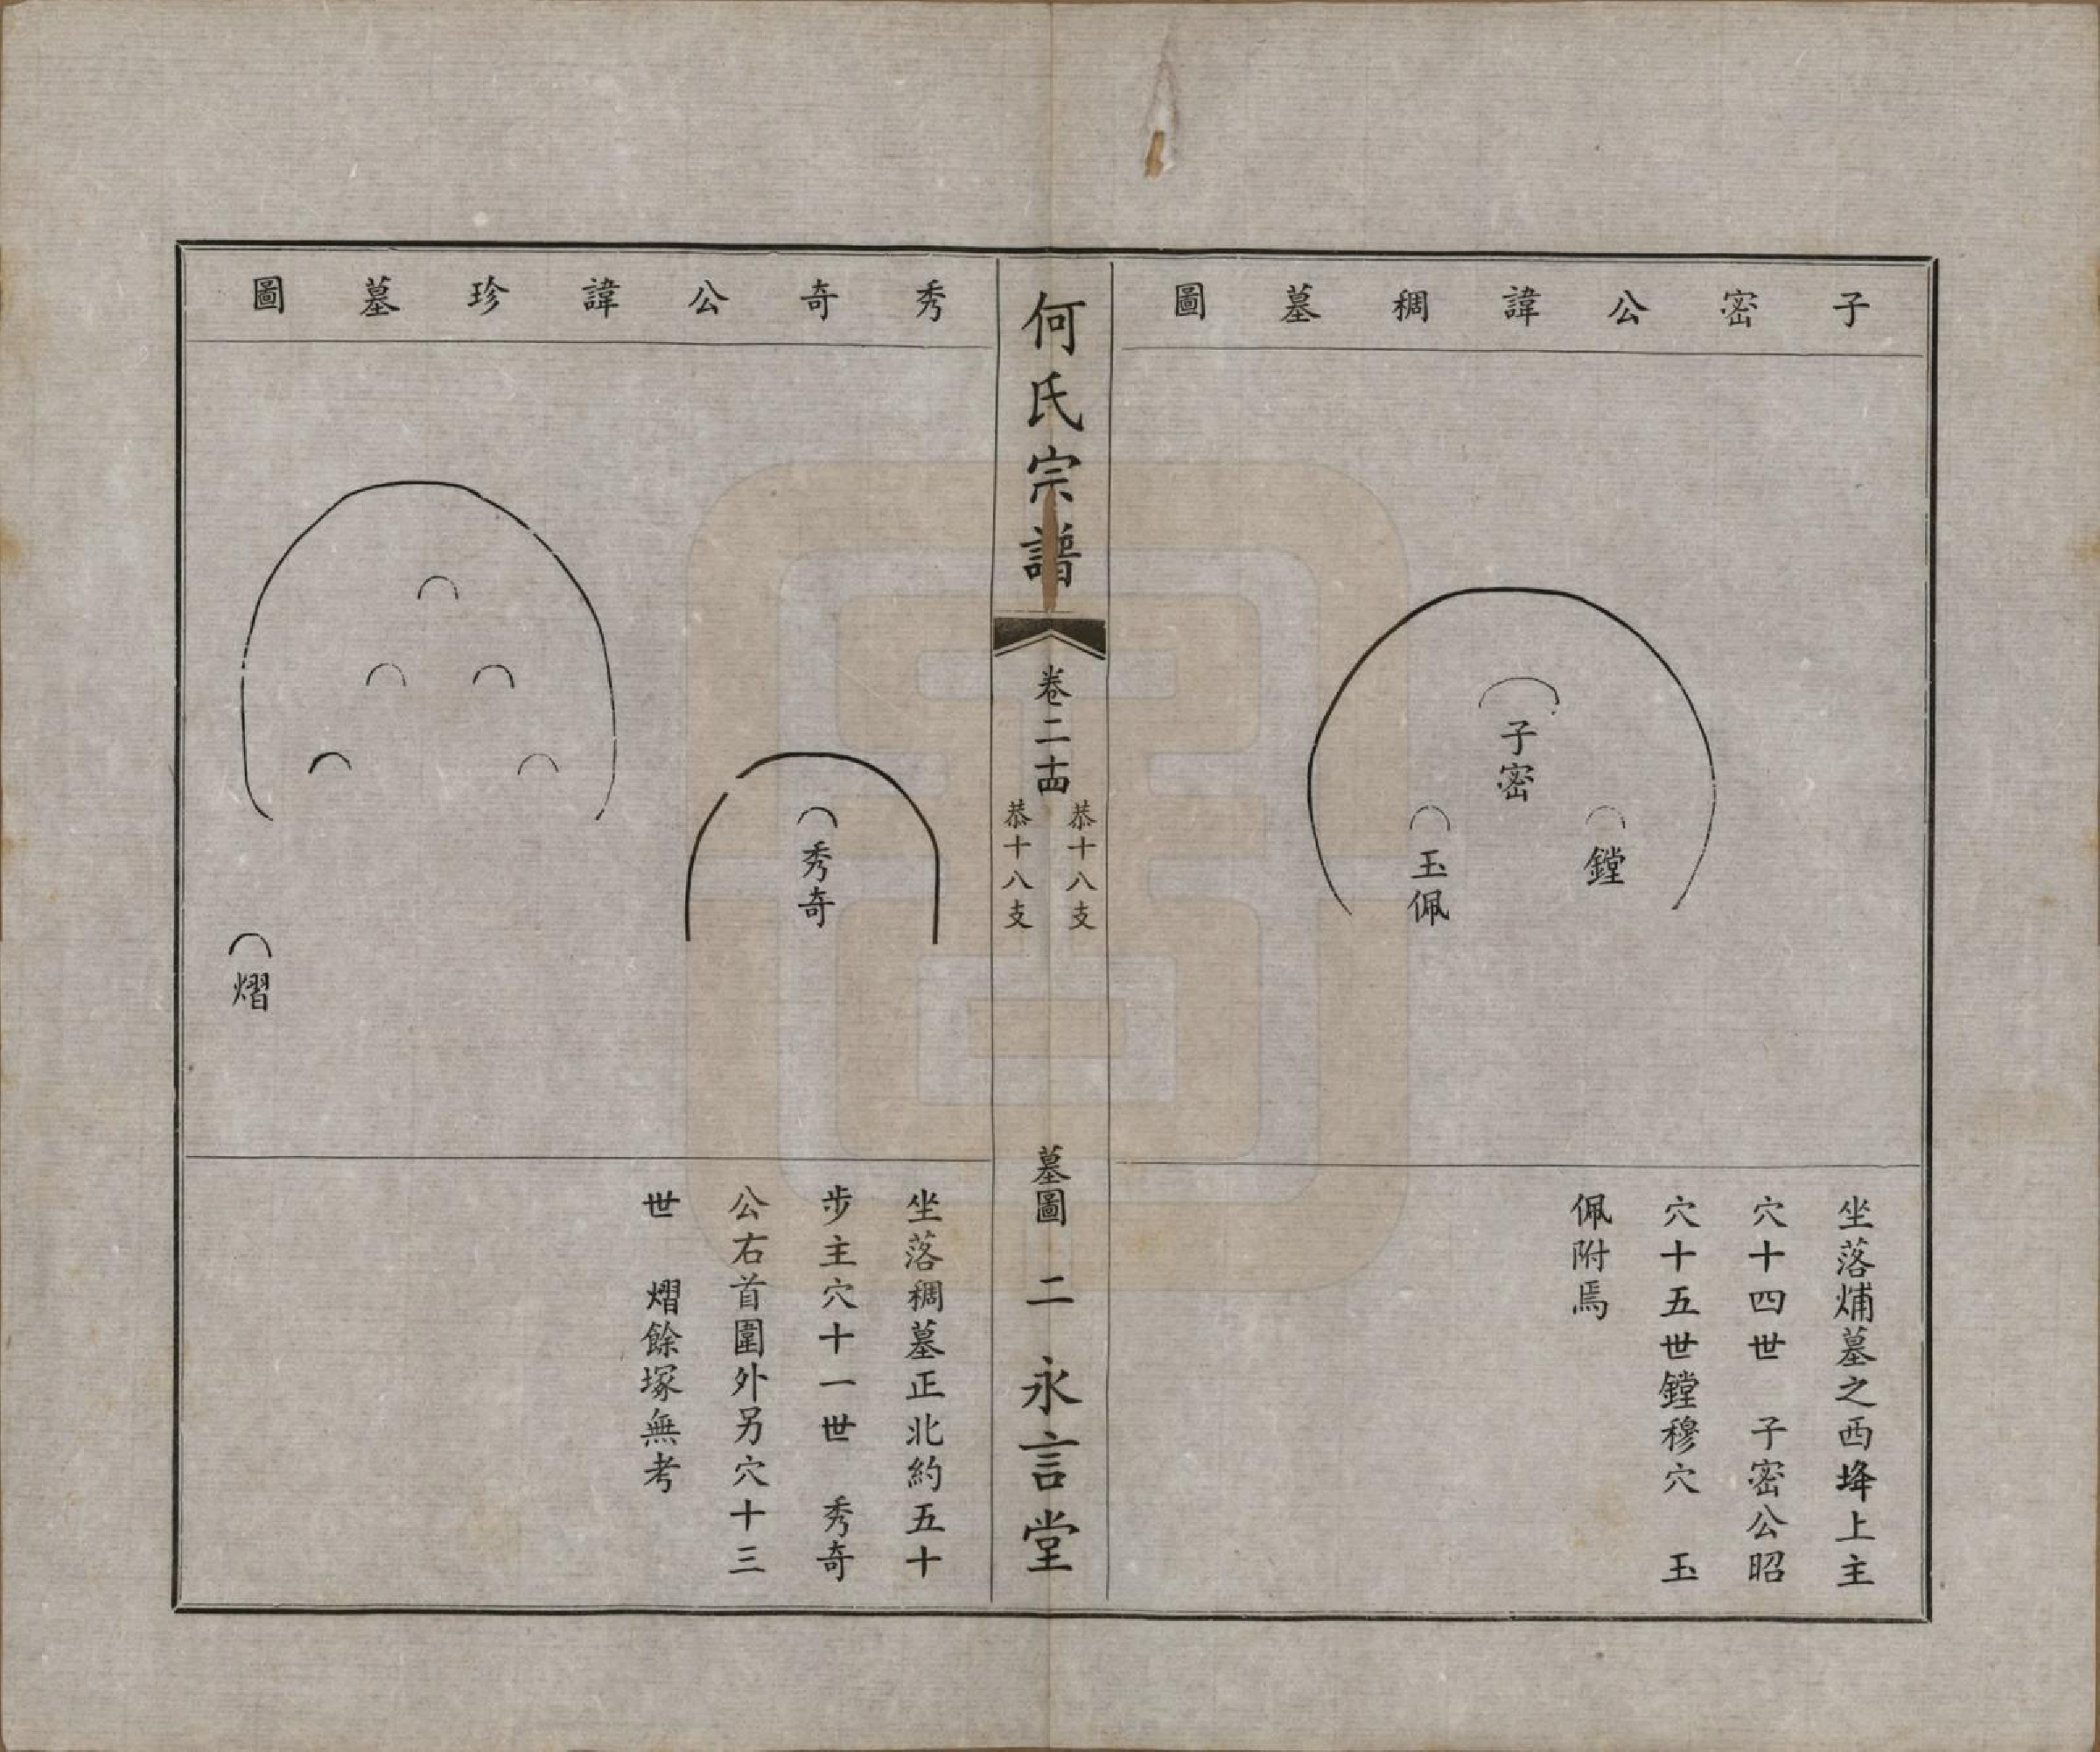 子密公諱稠墓圖
子密
鏜
玉佩
坐落烳墓之西垶上主
穴十四世　子密公昭
穴十五世鏜穆穴　玉
佩附焉
何氏宗譜
卷二十四
恭十八支
恭十八支
墓圖
二
永言堂
秀奇公諱珍墓圖
秀奇
熠
坐落稠墓正北約五十
步主穴十一世　秀奇
公右首圍外另穴十三
世　熠餘塚無考